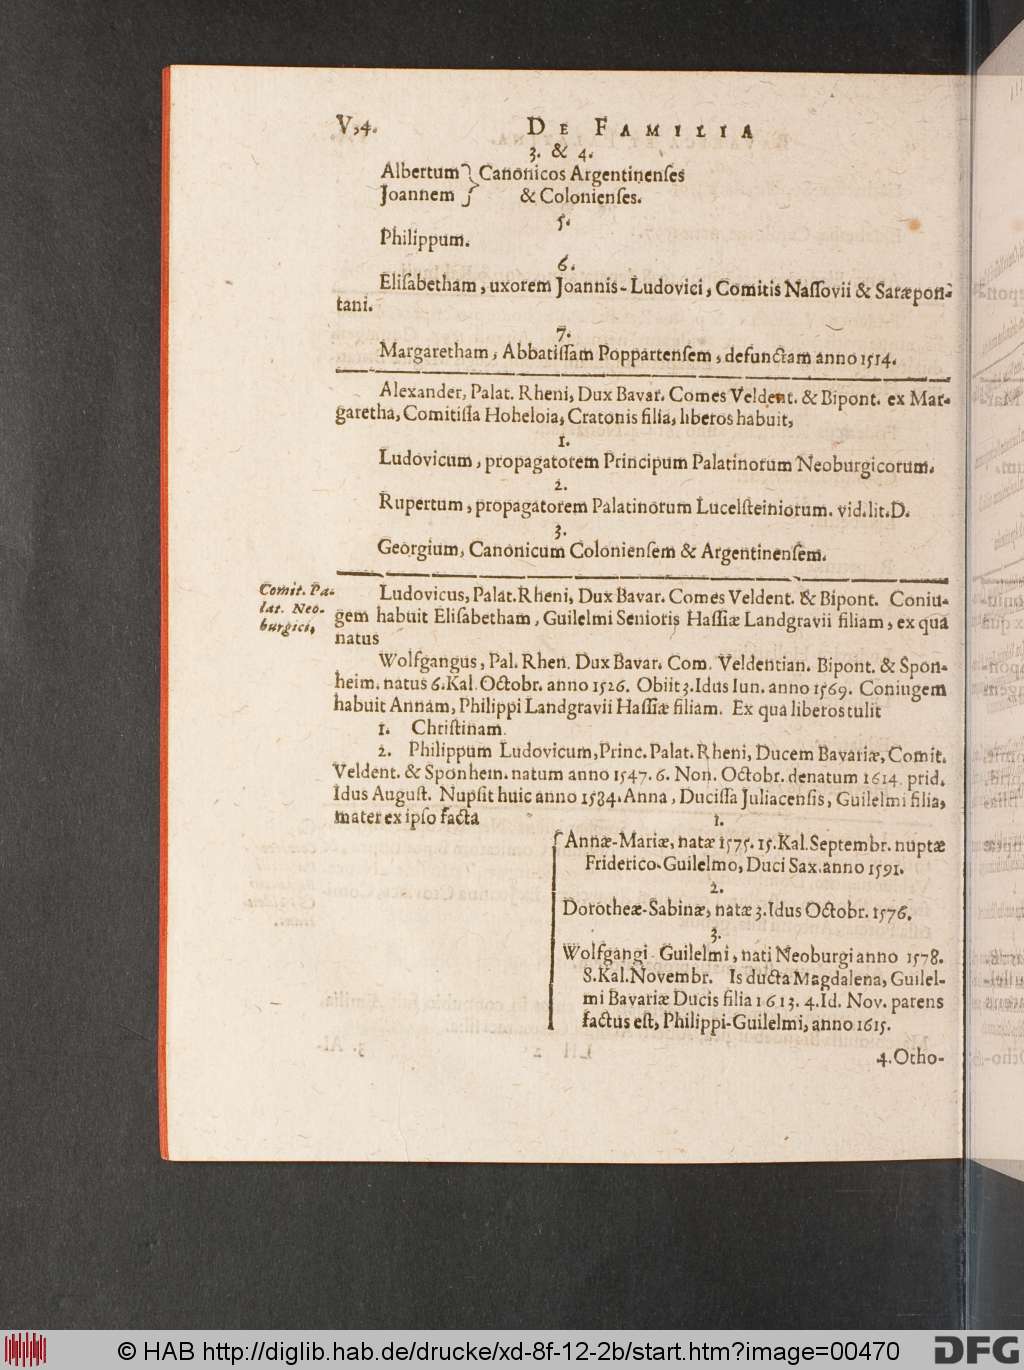 V,4. DE FAMILIA
3. & 4.
Albertum } Canonicos Argentinenſes
Joannem } & Colonienſes.
5.
Philippum.
6.
Eliſabetham, uxorem Joannis-Ludovici, Comitis Naſſovii & Saræpon-
tani.
7.
Margaretham, Abbatiſſam Poppartenſem, defunctam anno 1514.
Alexander, Palat. Rheni, Dux Bavar. Comes Veldent. & Bipont. ex Mar-
garetha, Comitiſſa Hoheloia, Cratonis filia, liberos habuit,
1.
Ludovicum, propagatorem Principum Palatinorum Neoburgicorum.
2.
Rupertum, propagatorem Palatinorum Lucelſteiniorum. vid. lit. D.
3.
Georgium, Canonicum Colonienſem & Argentinenſem.
Comit. Pa-
lat. Neo-
burgici.
Ludovicus, Palat. Rheni, Dux Bavar. Comes Veldent. & Bipont. Coniu-
gem habuit Eliſabetham, Guilelmi Senioris Haſſiæ Landgravii filiam, ex qua
natus
Wolfgangus, Pal. Rhen. Dux Bavar. Com. Veldentian. Bipont. & Spon-
heim. natus 6. Kal. Octobr. anno 1526. Obiit 3. Idus Iun. anno 1569. Coniugem
habuit Annam, Philippi Landgravii Haſſiæ filiam. Ex qua liberos tulit
1. Chriſtinam.
2. Philippum Ludovicum, Princ. Palat. Rheni, Ducem Bavariæ, Comit.
Veldent. & Sponhein. natum anno 1547. 6. Non. Octobr. denatum 1614. prid.
Idus Auguſt. Nupſit huic anno 1584. Anna, Duciſſa Juliacenſis, Guilelmi filia,
mater ex ipſo facta
1.
Annæ-Mariæ, natæ 1575. 15. Kal. Septembr. nuptæ
Friderico-Guilelmo, Duci Sax. anno 1591.
2.
Dorotheæ-Sabinæ, natæ 3. Idus Octobr. 1576.
3.
Wolfgangi Guilelmi, nati Neoburgi anno 1578.
8. Kal. Novembr. Is ducta Magdalena, Guilel-
mi Bavariæ Ducis filia 1613. 4. Id. Nov. parens
factus eſt, Philippi-Guilelmi, anno 1615.
4. Otho-
© HAB http://diglib.hab.de/drucke/xd-8f-12-2b/start.htm?image=00470
DFG